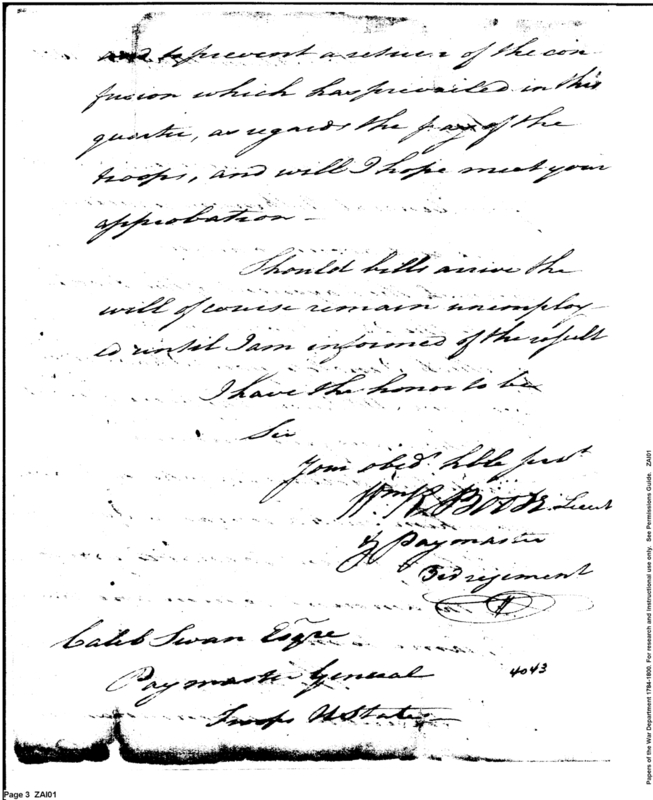 and to prevent a return of the con
fusion which has prevailed in this
quarter, as regards the pay of the
troops, and will I hope meet your
approbation —
Should bills arrive the
will of course remain unemploy
ed until I am informed of the result
I have the honor to be
Sir
Your obed. hble servt
Wm K Boote Lieut
& paymaster
3rd regiment
Caleb Swan Esqre
Paymaster General
Troops U States
4043
Page 3 ZAI01
Papers of the War Department 1784-1800. For research and instructional use only. See Permissions Guide. ZAI01